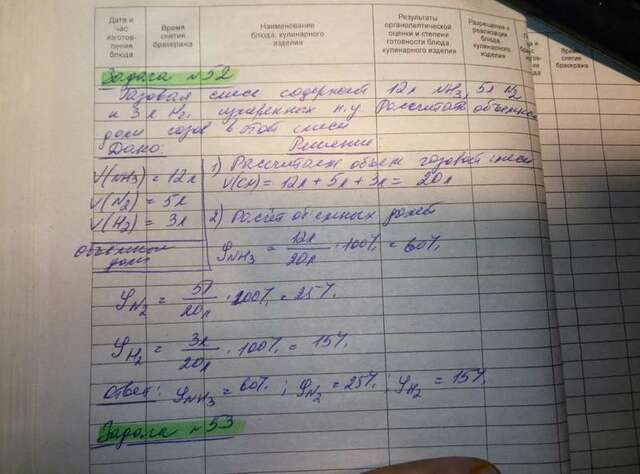 Дата и час изготовления блюда
Время снятия бракеража
Наименование блюда, кулинарного изделия
Результаты органолептической оценки и степени готовности блюда, кулинарного изделия
Разрешение к реализации блюда, кулинарного изделия
Время снятия бракеража
Задача №52
Газовая смесь содержит 12л NH3, 5л N2
и 3л H2, измеренных н.у Рассчитать объемные
доли газов в этой смеси
Дано: Решение
V(NH3) = 12л
V(N2) = 5л
V(H2) = 3л
Объемные
доли
1) Рассчитаем объем газовой смеси
V(см) = 12л + 5л + 3л = 20л
2) Расчёт объемных долей
φNH3 = 12л/20л · 100% = 60%
φN2 = 5л/20л · 100% = 25%
φH2 = 3л/20л · 100% = 15%
Ответ: φNH3 = 60%; φN2 = 25%; φH2 = 15%
Задача №53